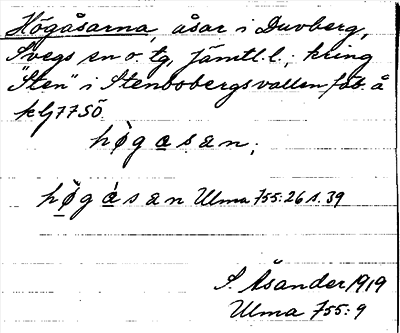 Högåsarna, åsar i Duvberg,
Svegs sn o. tg, Jämtl. l., kring
"Sten" i Stenbobergsvallen, fäb. å
kbl 77 SÖ
hògasan,
hògásan Ulma 755:26 s. 39
S. Åsander 1919
Ulma 755:9